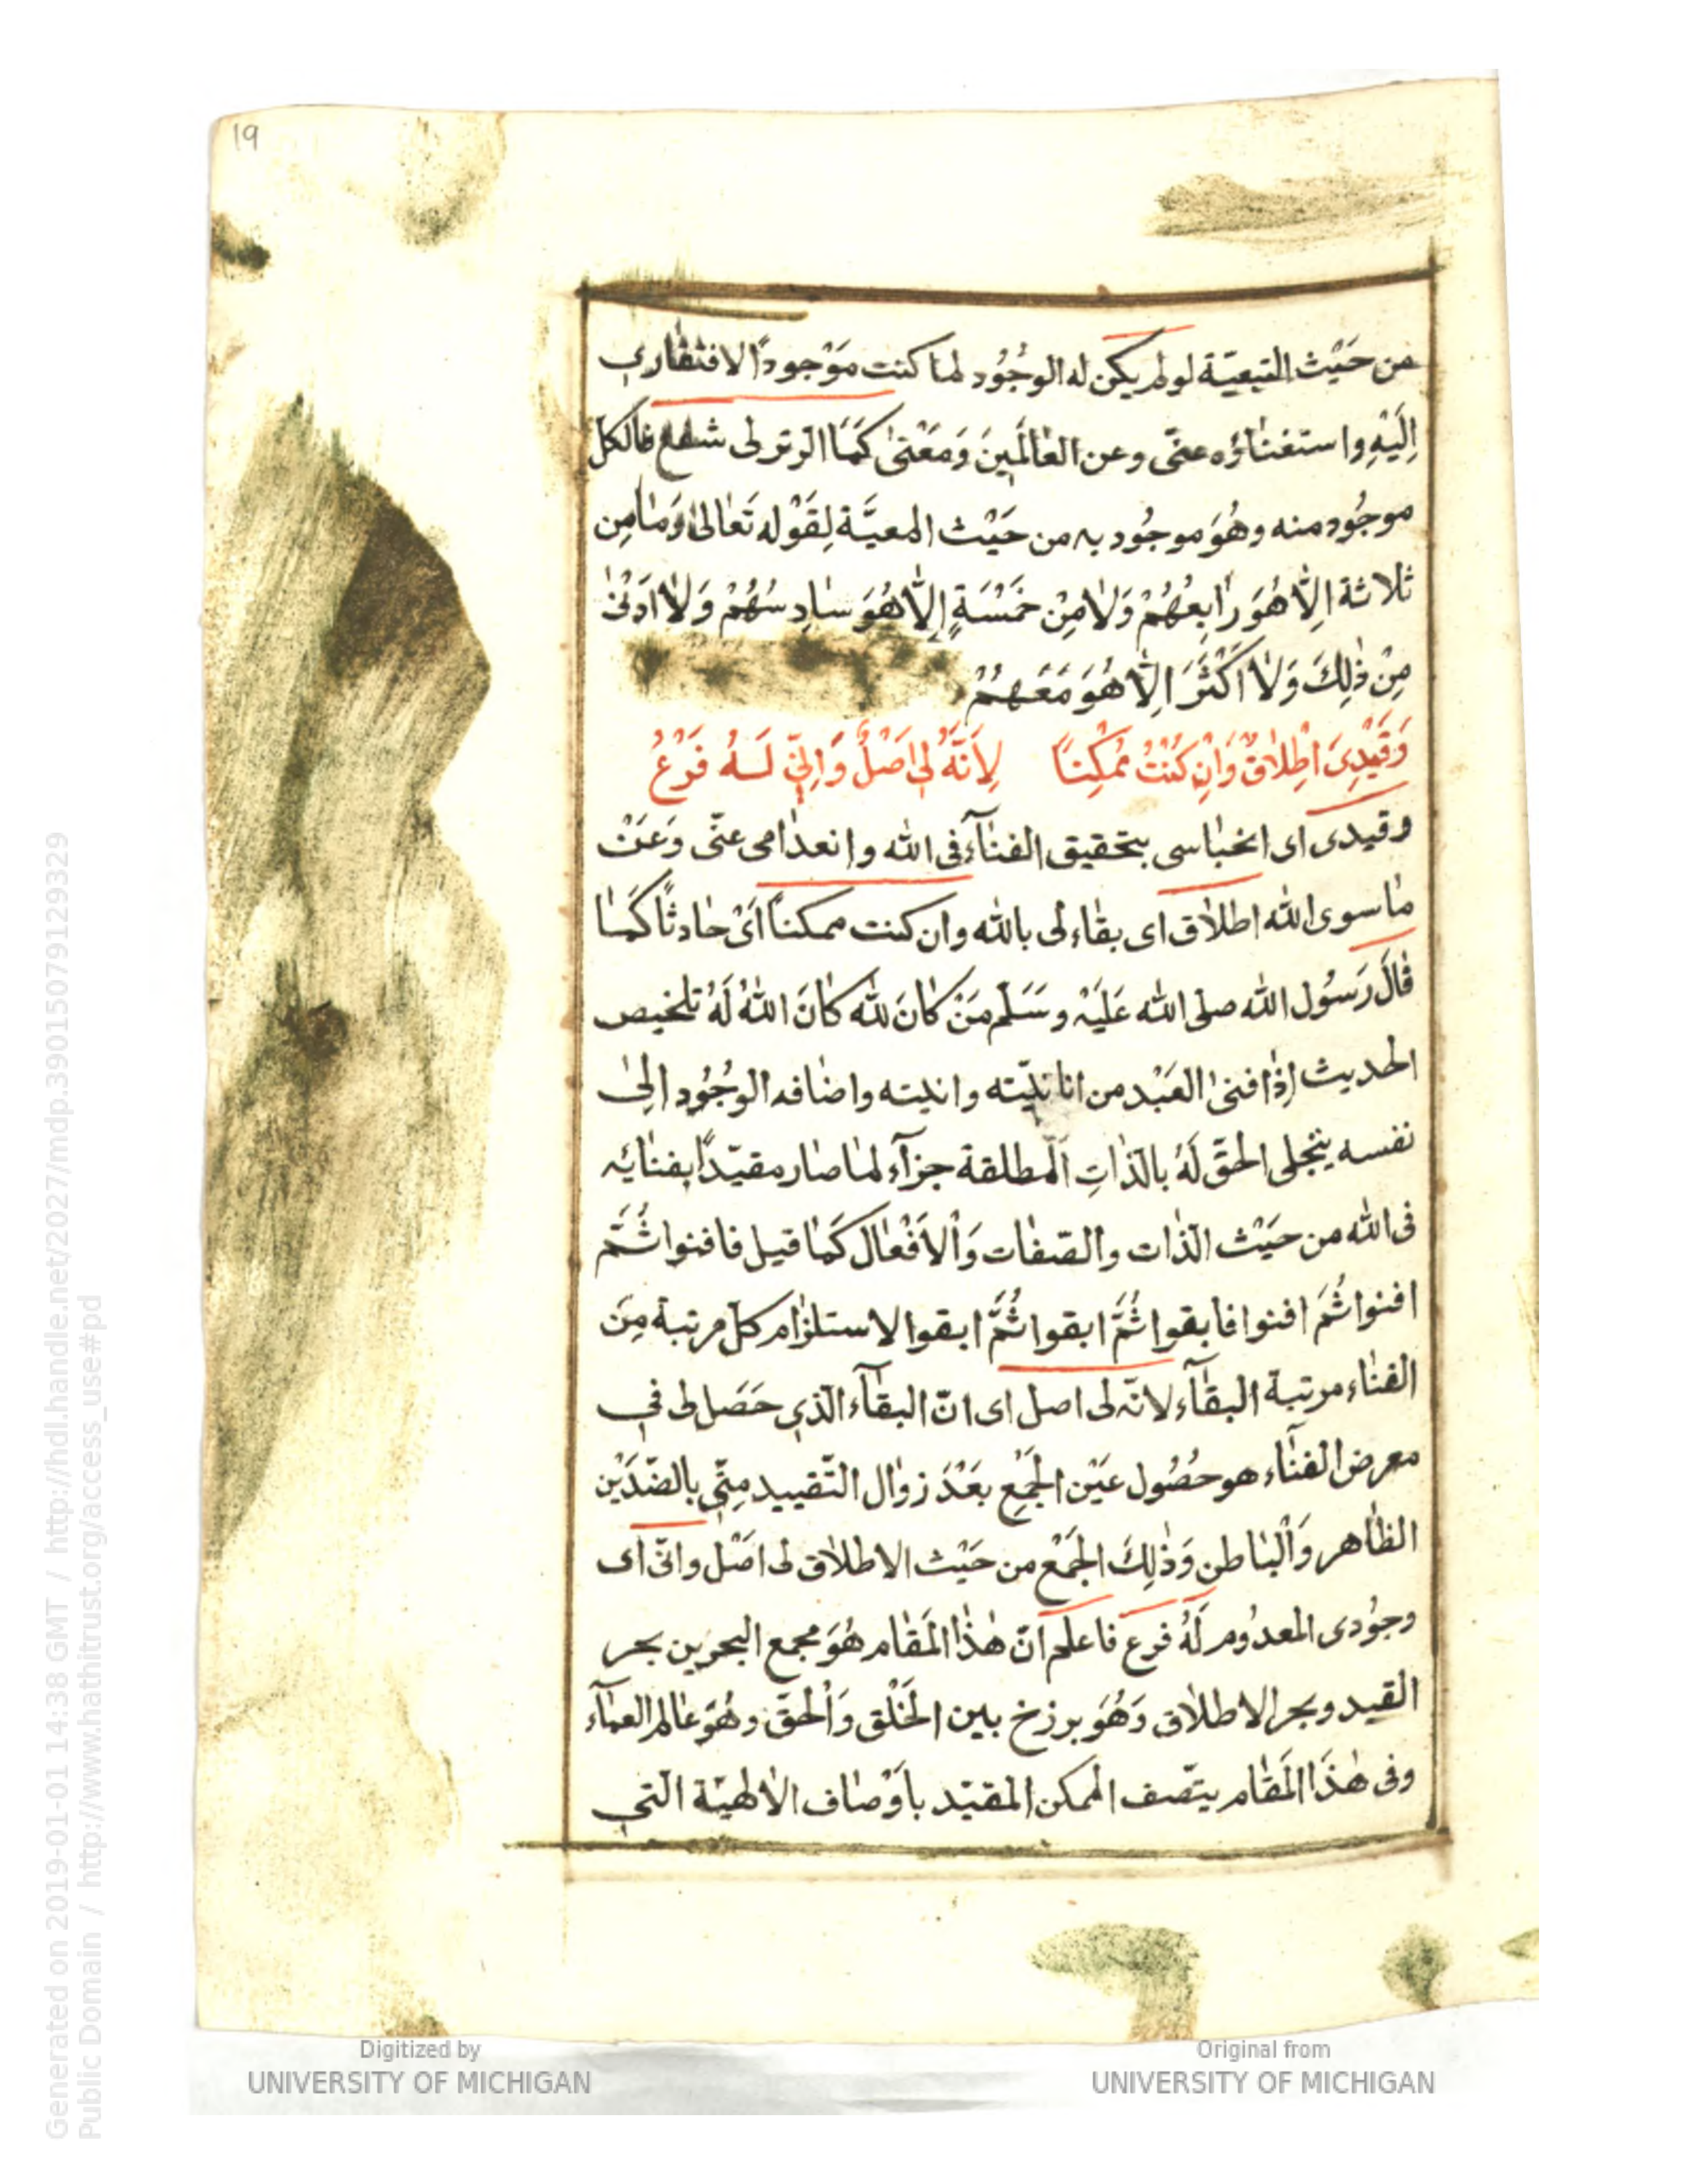 19
من حَيْث التبعيّة لو لم يكن له الوجُود لما كنت مَوْجودًا لافتقاري
اِلَيْهِ واستغناؤه عنّى وعن العٰالَمينَ وَمَعْنىٰ كَمَا الوتر لى شفع فالكل
موجُود منه وهُوَ موجُود به من حَيْث المعيَّة لِقَوْله تَعَالىٰ وَمَا مِن
ثلاثة اِلَّا هُوَ رَابعهُمْ وَلَا مِنْ خَمْسَةٍ اِلَّا هُوَ سَادِسُهُمْ وَلَا اَدْنىٰ
مِنْ ذٰلِكَ وَلَا اَكْثَرَ اِلَّا هُوَ مَعَهُمْ
وَقَيْدِىَ اِطْلَاقٌ وَاِنْ كُنْتُ مُمْكِنًا لِاَنَّهُ لِي اَصْلٌ وَاِنِّي لَهُ فَرْعُ
وقيدى اى انحباسى بتحقيق الفنآء فى الله وانعدامى عنّى وَعَنْ
مٰا سوى الله اطلاق اى بقاء لى بالله وان كنت ممكنًا اَىْ حادثًا كَمَا
قٰالَ رَسُول الله صلى الله عَلَيْهِ وسَلّم مَنْ كَانَ لله كَانَ اللهُ لَهُ تلخيص
الحديث اِذا فنىٰ العَبْد من انانيّته وانيته واضافه الوجُود الىٰ
نفسه يتجلى الحقّ لَهُ بالذاتِ المطلقة جزآء لما صار مقيّدًا بفنائه
فى الله من حَيْث الذات والصّفات وَالْاَفْعال كَمَا قيل فافنوا ثُمَّ
افنوا ثُمَّ افنوا فابقوا ثُمَّ ابقوا ثُمَّ ابقوا لاستلزام كلّ مرتبة مِنَ
الفناء مرتبة البقآء لانّه لى اصل اى انّ البقآء الّذى حَصَل لى في
معرض الفنآء هو حصُول عَيْن الجَمْعِ بَعْدَ زوال التّقييد مِنّى بالضّدَيْن
الظاهر وَالْبَاطن وَذٰلِكَ الجَمْع من حَيْث الاطلاق لى اَصْل وانّى اى
وجوُدى المعدوُم لَهُ فرع فاعلم انّ هٰذا المَقام هُوَ مجمع البحرين بحر
القيد وبحر الاطلاق وَهُوَ برزخ بين الخَلْق وَالْحقّ وهُوَ عالم العمآء
وفى هٰذَا المَقام يتّصف الممكن المقيّد باَوْصاف الالهيّة الّتي
Generated on 2019-01-01 14:38 GMT / http://hdl.handle.net/2027/mdp.39015079129329
Public Domain / http://www.hathitrust.org/access_use#pd
Digitized by
UNIVERSITY OF MICHIGAN
Original from
UNIVERSITY OF MICHIGAN